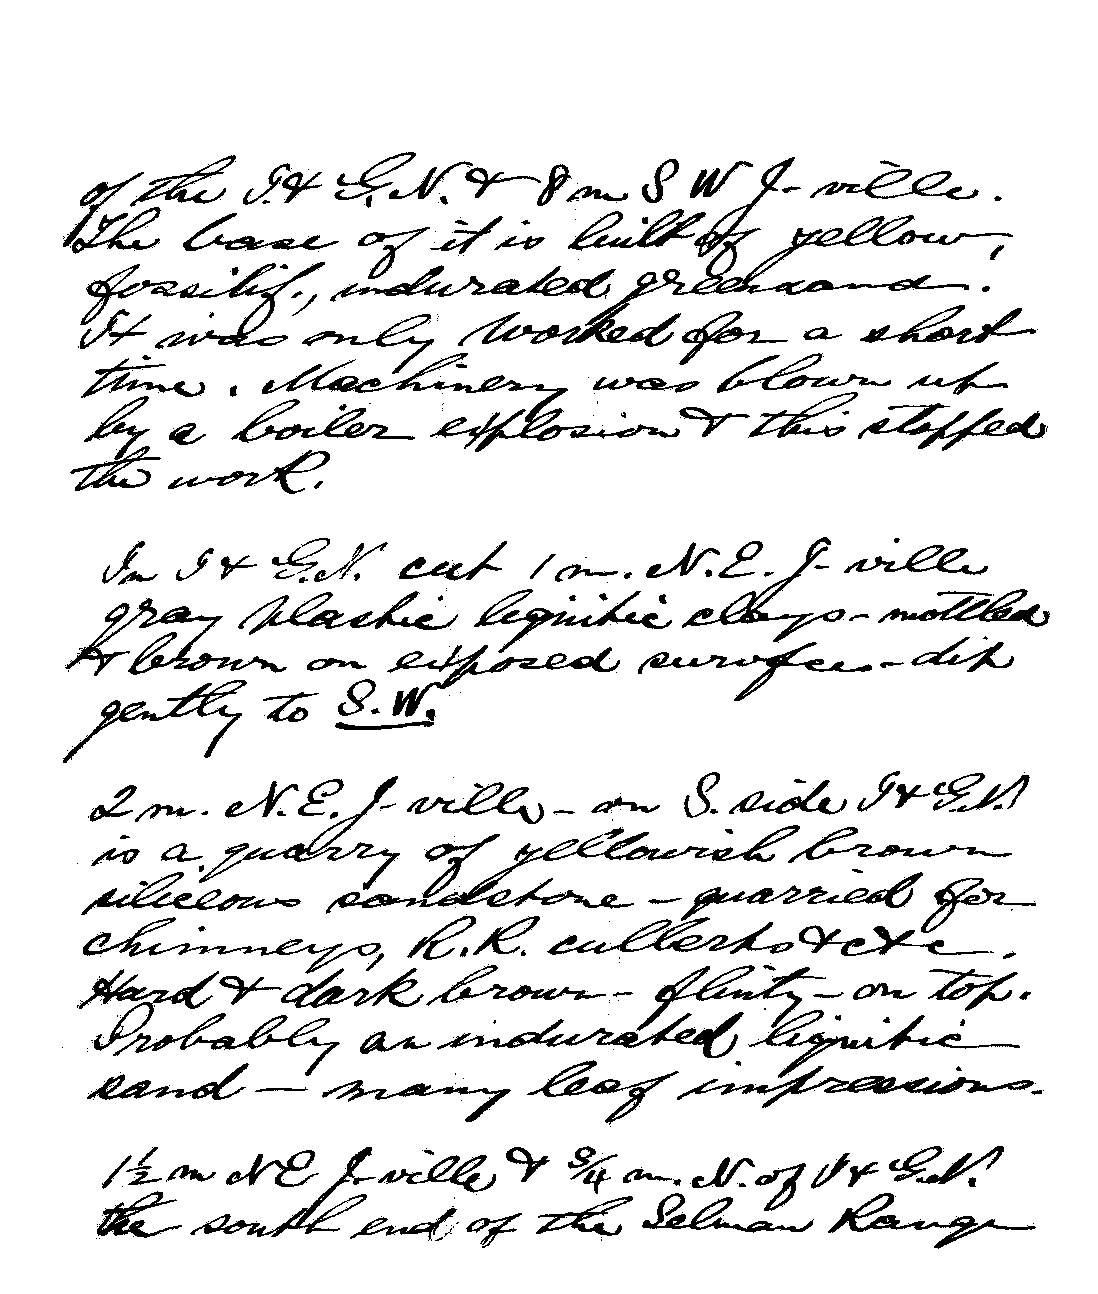 of the I. & G. N. & 8 m S W J-ville.
The base of it is built of yellow,
fossilif., indurated greensand.
It was only worked for a short
time. Machinery was blown up
by a boiler explosion & this stopped
the work.
In I & G. N. cut 1 m. N. E. J-ville
gray plastic lignitic clays - mottled
& brown on exposed surfces - dip
gently to S. W.
2 m. N. E. J-ville - on S. side I & G. N.
is a quarry of yellowish brown
siliceous sandstone - quarried for
chimneys, R. R. culverts & c & c.
Hard & dark brown - flinty - on top.
Probably an indurated lignitic
sand - many leaf impressions.
1½ m N E J-ville & 3/4 m. N. of I & G. N.
the south end of the Selman Range